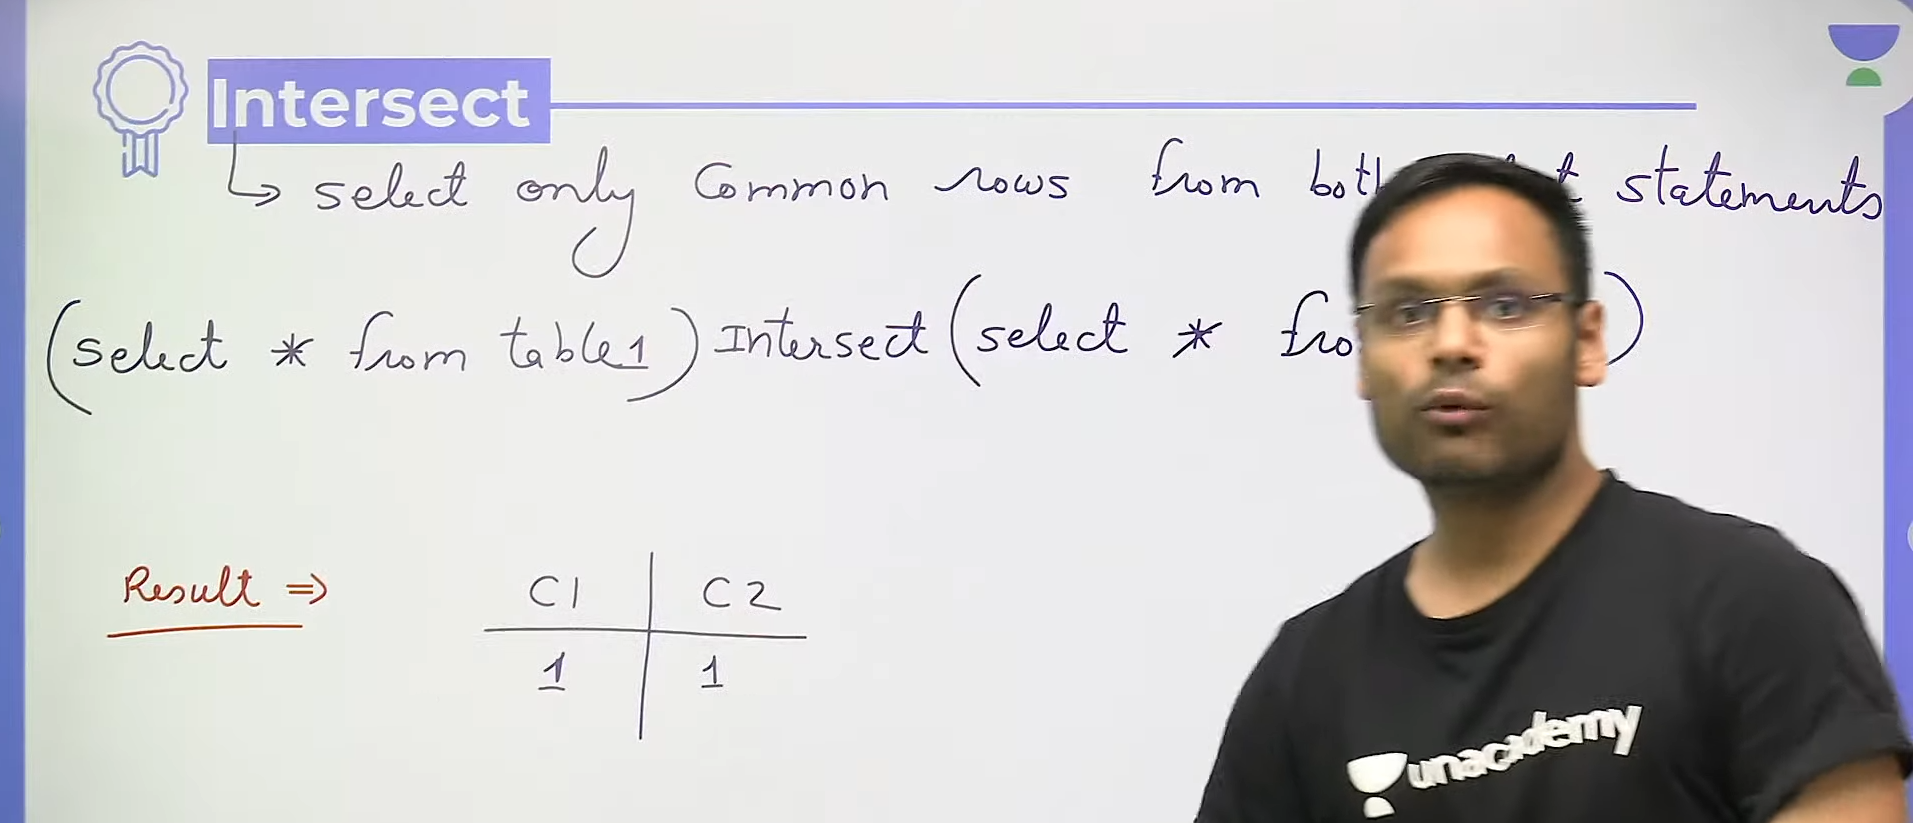 Intersect
↳ select only Common rows from both statements
(select * from table1) Intersect (select * fro )
Result ⇒
C1 C2
1 1
unacademy